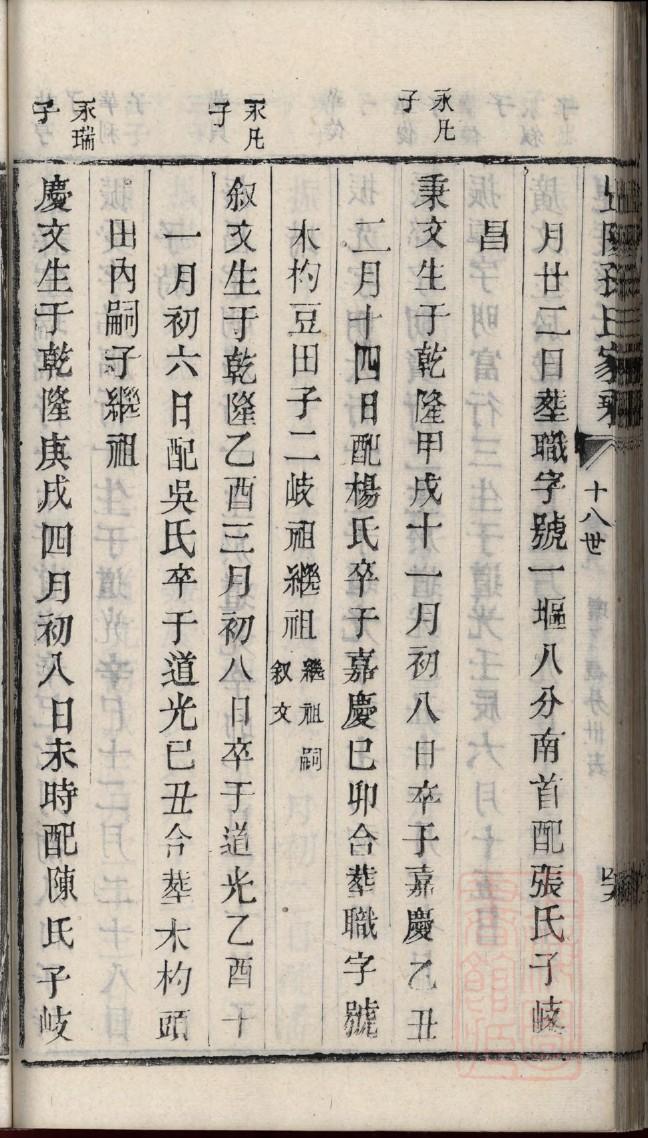 十八世
月廿二日塟職字號一堰八分南首配張氏子岐
昌
永凡
子
秉文生于乾隆甲戌十一月初八日卒于嘉慶乙丑
三月十四日配楊氏卒于嘉慶巳卯合塟職字號
木杓豆田子二岐祖繼祖
繼祖嗣
叙文
永凡
子
叙文生于乾隆乙酉三月初八日卒于道光乙酉十
一月初六日配吳氏卒于道光巳丑合塟木杓頭
田內嗣子繼祖
永瑞
子
慶文生于乾隆庚戌四月初八日未時配陳氏子岐